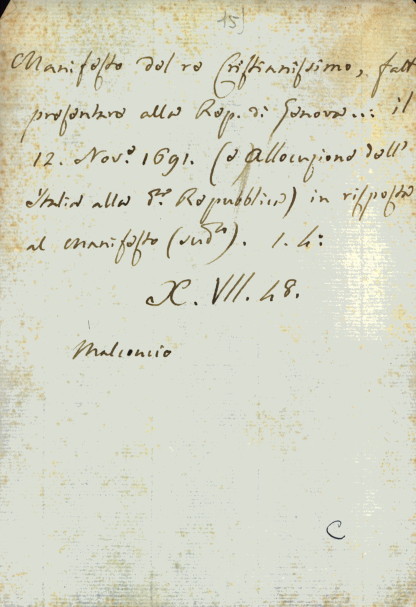 15)
Manifesto del re Cristianissimo, fatt
presentare alla Rep. di Genova... il
12. Nov.e 1691. (e Allocuzione dell'
Italia alla S.ta Repubblica) in risposta
al manifesto (sud.o). 1. 4:
X. VII. 48.
Malconcio
C